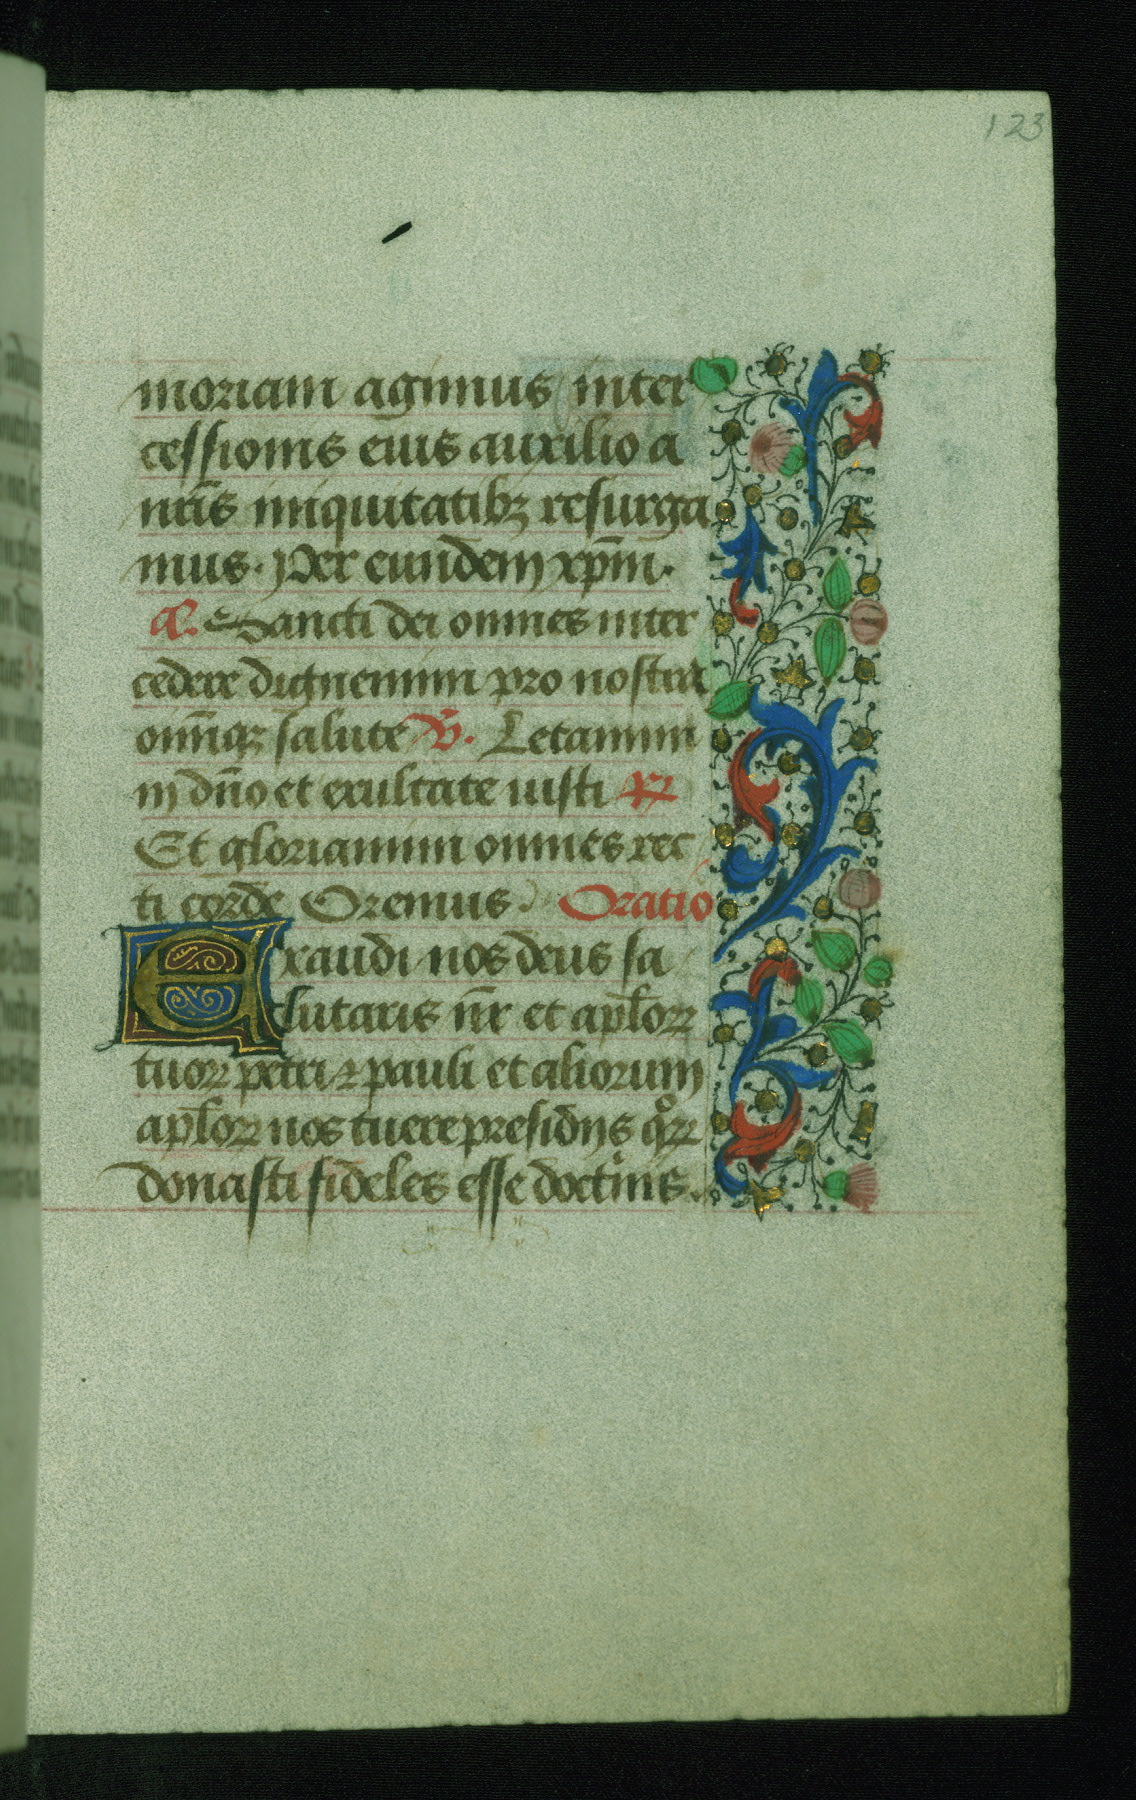 123
moriam agimus inter
cessionis eius auxilio a
nr̄is iniquitatibꝫ resurga
mus. Per eundem xp̄m.
A. Sancti dei omnes inter
cedere dignemini pro nostra
omn̄iqꝫ salute V̄. Letamini
in dn̄o et exultate iusti ℞
Et gloriamini omnes rec
ti corde Oremus Oratio
Exaudi nos deus sa
lutaris nr̄ et apl̄oꝝ
tuoꝝ petri ⁊ pauli et aliorum
apl̄oꝝ nos tuere presidijs qͦꝝ
donasti fideles esse doctͥnis.